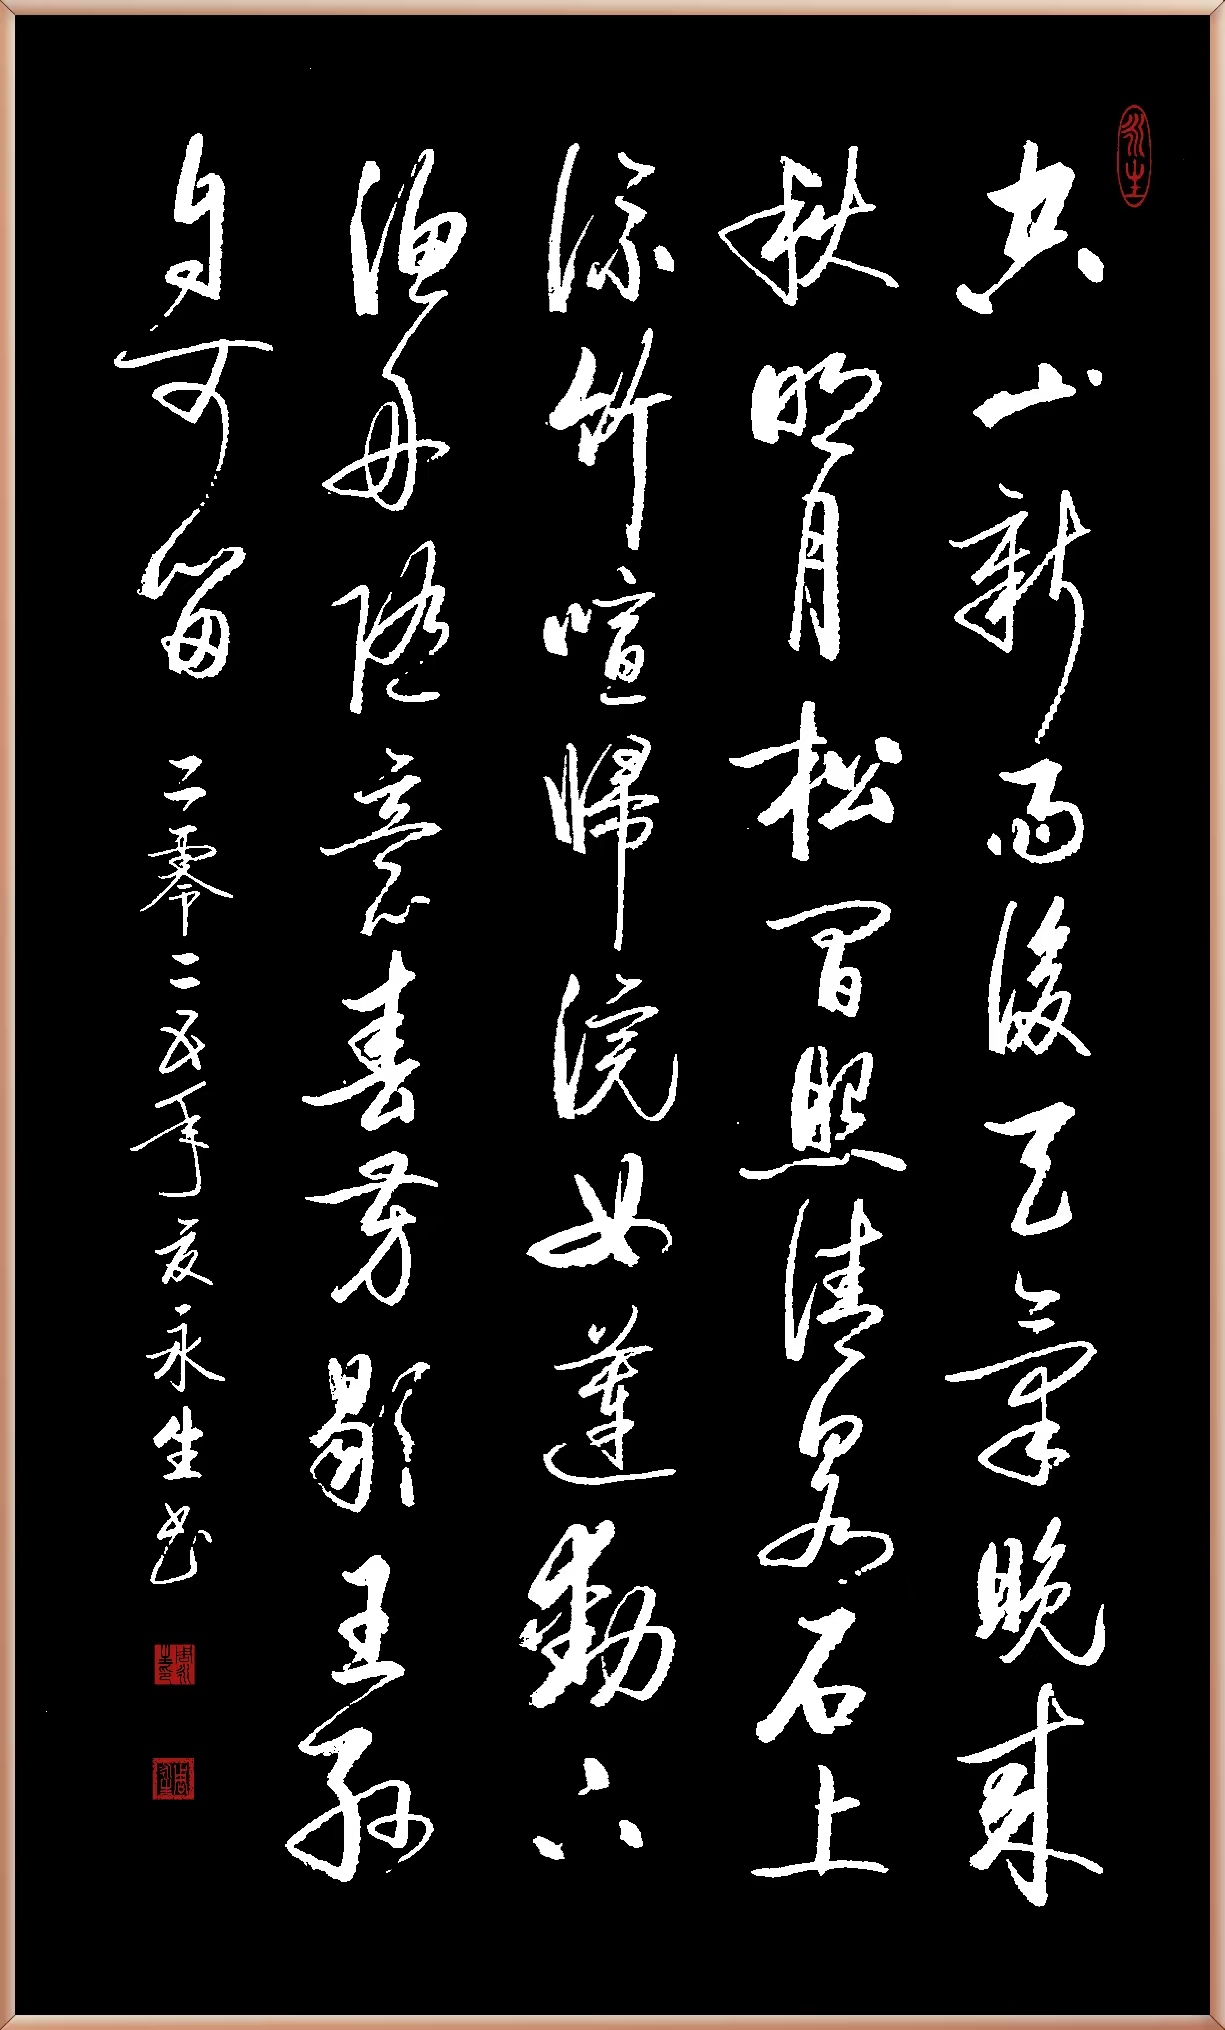 永生
空山新雨後天氣晚來
秋明月松間照清泉石上
流竹喧歸浣女蓮動下
漁舟隨意春芳歇王孫
自可留 二零二五年夏永生书